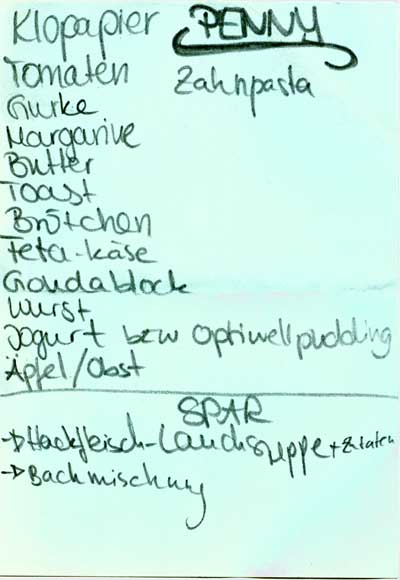 Klopapier PENNY
Tomaten Zahnpasta
Gurke
Margarine
Butter
Toast
Brötchen
Feta-käse
Goudablock
Wurst
Jogurt bzw Optiwellpudding
Äpfel/Obst
SPAR
→Hackfleisch-Lauchsuppe + Zutaten
→Backmischung